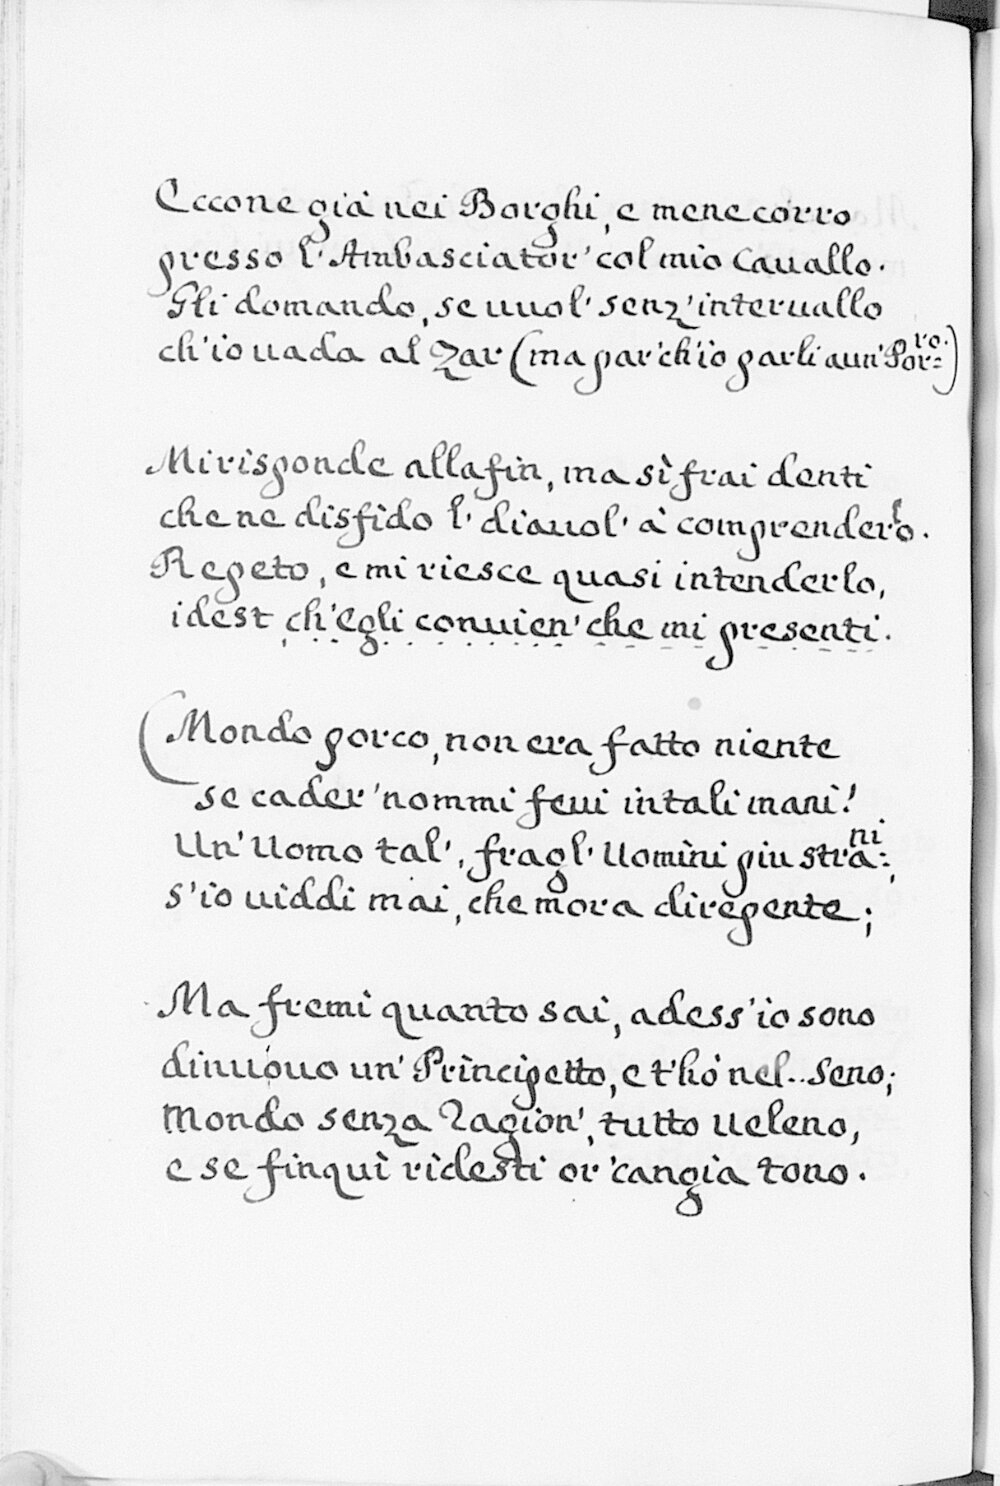 Eccone già nei Borghi, e mene corro
presso l' Ambasciator' col mio Cauallo.
Gli domando, se uuol' senz' interuallo
ch'io uada al Zar (ma par' ch'io parli a un' Por=ro.)
Mi risponde alla fin, ma sì frai denti
che ne disfido l' diauol' à comprenderlo.
Repeto, e mi riesce quasi intenderlo,
idest ch'egli conuien' che mi presenti.
(Mondo porco, non era fatto niente
se cader' nommi feui in tali mani!
Un' Uomo tal', fragl' Uomini piu stra=ni,
s'io uiddi mai, che mora di repente;
Ma fremi quanto sai, adess' io sono
dinuouo un' Principetto, e t'hò nel.. Seno;
Mondo senza Ragion', tutto ueleno,
e se finquì ridesti or' cangia tono.